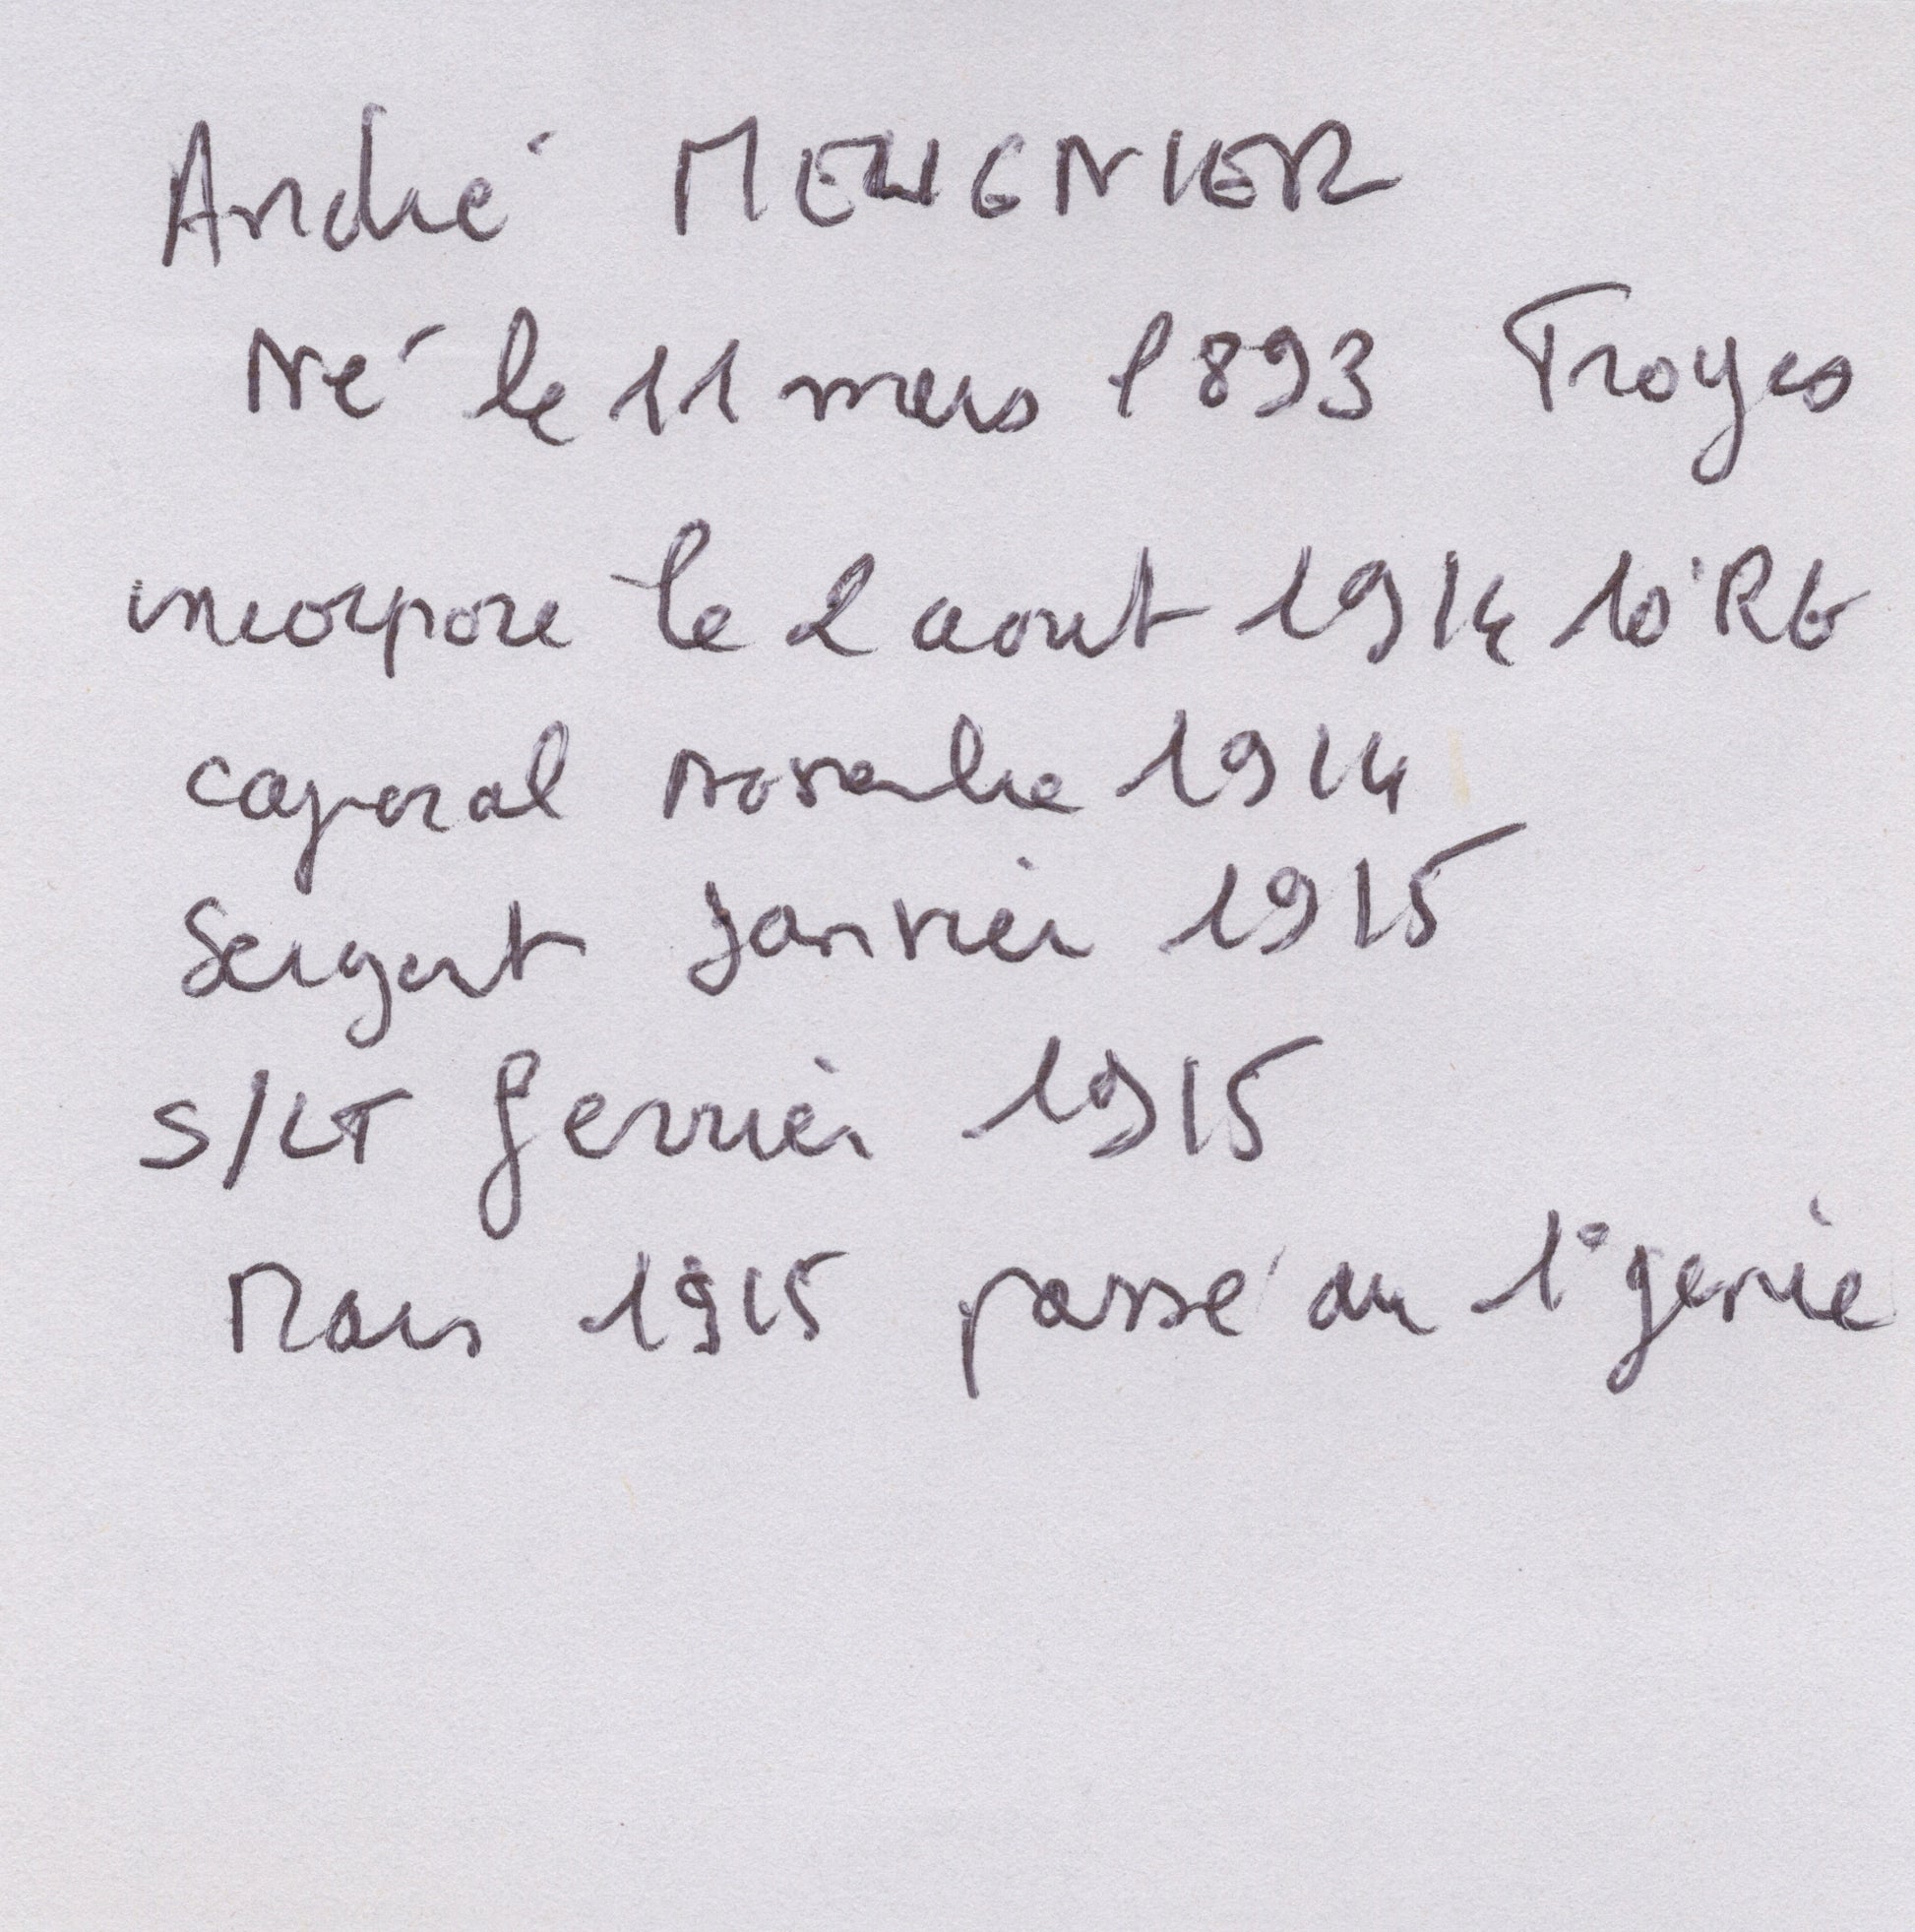 André MEUGNIER
Né le 11 mars 1893 Troyes
incorpore le 2 aout 1914 10°RG
caporal novembre 1914
Sergent Janvier 1915
S/LT fevrier 1915
Mars 1915 passé au 1° genie